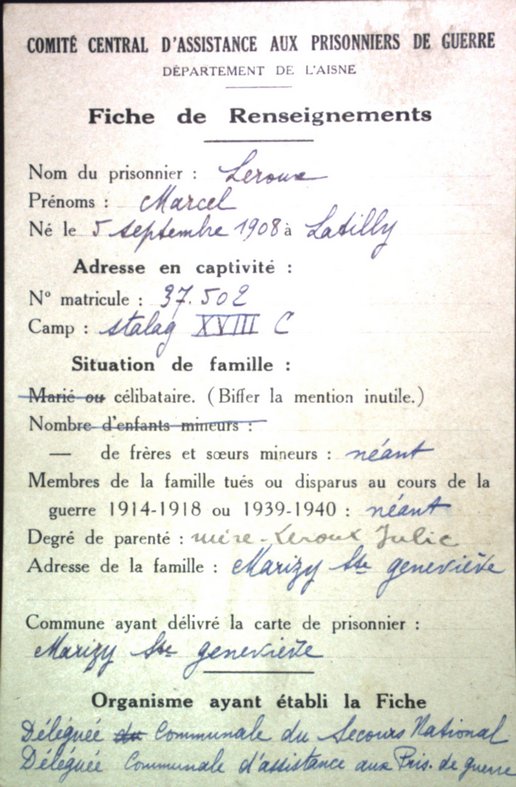 COMITÉ CENTRAL D'ASSISTANCE AUX PRISONNIERS DE GUERRE
DÉPARTEMENT DE L'AISNE
Fiche de Renseignements
Nom du prisonnier : Leroux
Prénoms : Marcel
Né le 5 septembre 1908 à Latilly
Adresse en captivité :
N° matricule : 37.502
Camp : stalag XVIII C
Situation de famille :
Marié ou célibataire. (Biffer la mention inutile.)
Nombre d'enfants mineurs :
— de frères et sœurs mineurs : néant
Membres de la famille tués ou disparus au cours de la
guerre 1914-1918 ou 1939-1940 : néant
Degré de parenté : mère - Leroux Julie
Adresse de la famille : Marizy Ste geneviève
Commune ayant délivré la carte de prisonnier :
Marizy Ste geneviève
Organisme ayant établi la Fiche
Déléguée du Communale du Secours National
Déléguée Communale d'assistance aux Pris. de guerre